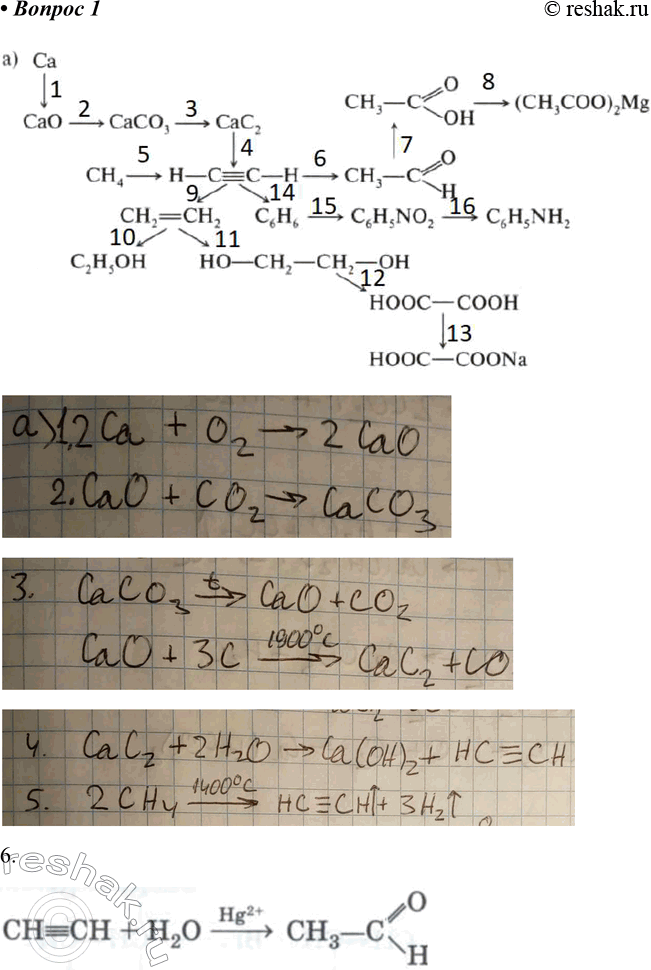 • Вопрос 1
© reshak.ru
а) Ca
1
CaO 2→ CaCO₃ 3→ CaC₂
4
CH₄ 5→ H—C≡C—H 6→ CH₃—C=O H
7
CH₃—C=O OH 8→ (CH₃COO)₂Mg
9 14
CH₂=CH₂ C₆H₆ 15→ C₆H₅NO₂ 16→ C₆H₅NH₂
10 11
C₂H₅OH HO—CH₂—CH₂—OH
12
HOOC—COOH
13
HOOC—COONa
а) 1. 2Ca + O₂ → 2CaO
2. CaO + CO₂ → CaCO₃
3. CaCO₃ t→ CaO + CO₂
CaO + 3C 1900°C→ CaC₂ + CO
4. CaC₂ + 2H₂O → Ca(OH)₂ + HC≡CH
5. 2CH₄ 1400°C→ HC≡CH↑ + 3H₂↑
6.
CH≡CH + H₂O Hg²⁺→ CH₃—C=O H
reshak.ru